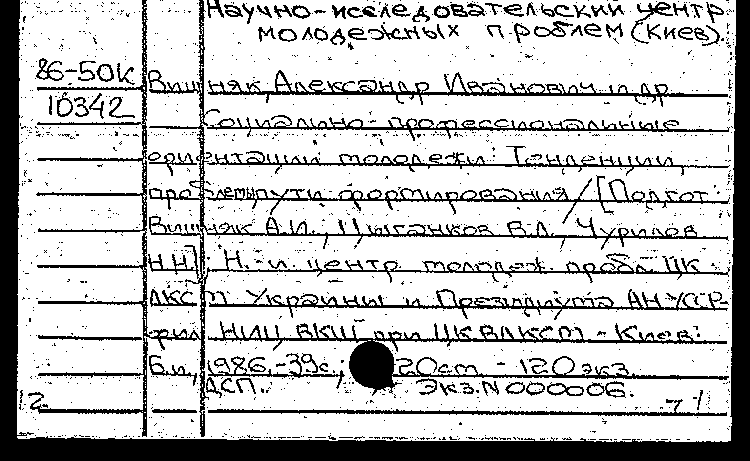 Научно-исследовательский центр
молодежных проблем (Киев).
86-50К Вишняк, Александр Иванович и др.
10342 Социально-профессиональные
ориентации молодежи: Тенденции,
проблемы, пути формирования / [Подгот.
Вишняк А.И., Цыганков В.А., Чурилов
Н.Н.]; Н.-и. центр молодеж. пробл. ЦК
ЛКСМ Украины и Президиума АН УССР
фил. НИЦ ВКШ при ЦК ВЛКСМ. - Киев:
Б.и., 1986. - 39с.; 20см. - 120 экз.
ДСП. Экз. N 000006.
12